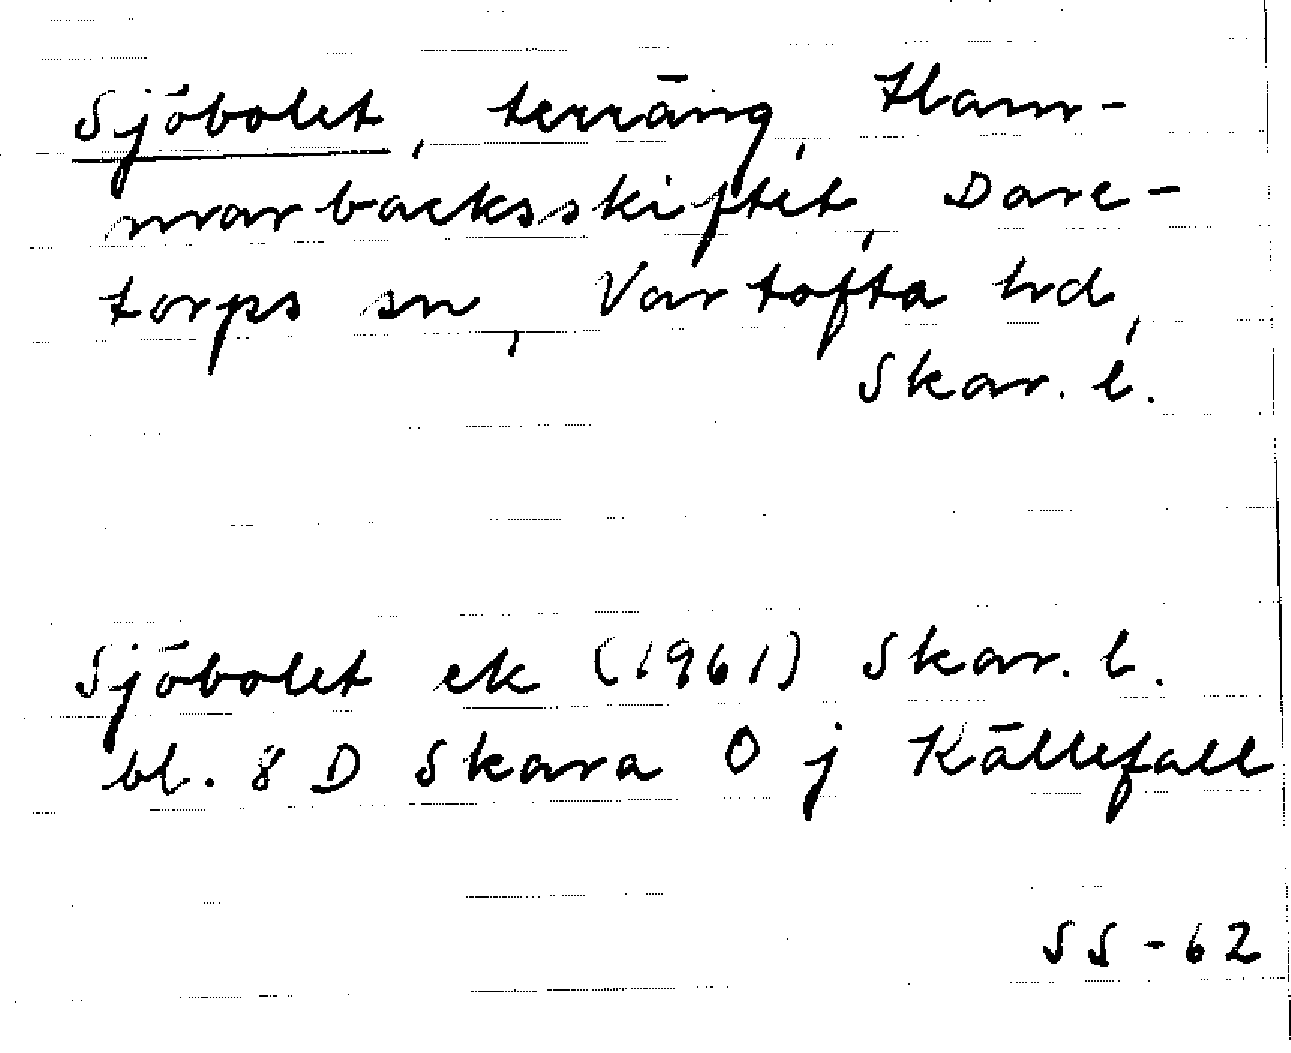 Sjöbolet, terräng, Ham-
marbacksskiftet, Dare-
torps sn, Vartofta hd,
Skar. l.
Sjöbolet ek (1961) Skar. l.
bl. 8 D Skara O j Källefall
SS-62